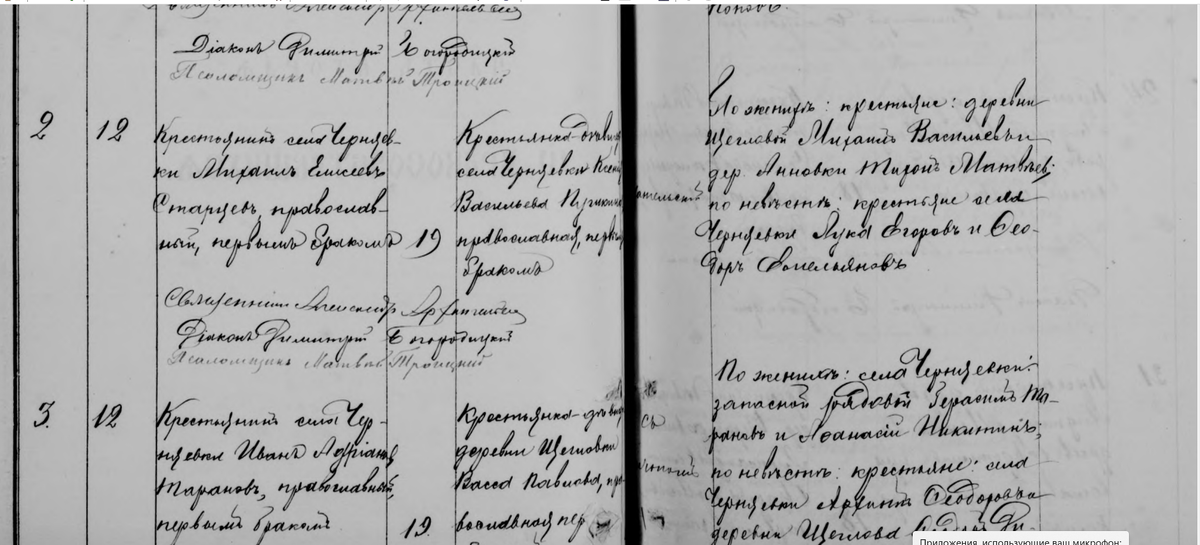 Діаконъ Димитрій Богородицкій
Псаломщикъ Матвѣй Троицкій
2
12
Крестьянинъ села Черняев-
ки Михаилъ Елисеевъ
Старцевъ, православ-
ный, первымъ бракомъ
19
Крестьянка-дѣвица
села Черняевки
Васильева
православная, первымъ
бракомъ
По женихѣ: крестьяне: деревни
Щегловой Михаилъ Васильевъ и
дер. Анновки Тихонъ Матвѣевъ;
по невѣстѣ: крестьяне села
Черняевки Лука Егоровъ и Ѳео-
доръ Емельяновъ
Священникъ Александръ Архангельскій
Діаконъ Димитрій Богородицкій
Псаломщикъ Матвѣй Троицкій
3.
12
Крестьянинъ села Чер-
няевки Иванъ Адріановъ
Тарановъ, православный,
первымъ бракомъ
19.
Крестьянка-дѣвица
деревни Щегловки
Васса Павлова, пра-
вославная, пер-
По женихѣ: села Черняевки:
запасной рядовой Герасимъ Та-
рановъ и Аѳанасій Никитинъ;
по невѣстѣ: крестьяне: села
Черняевки Ѳеодоровъ и
деревни Щеглова
Приложения, использующие ваш микрофон: